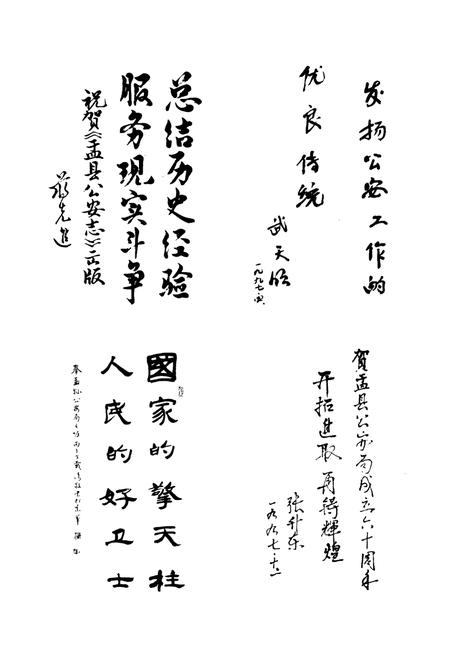 发扬公安工作的
优良传统
武天欣
一九九七
总结历史经验
服务现实斗争
祝贺《孟县公安志》出版
先进
贺孟县公安局成立六十周年
开拓进取 再铸辉煌
张升东
一九九七·十二
國家的擎天柱
人民的好卫士